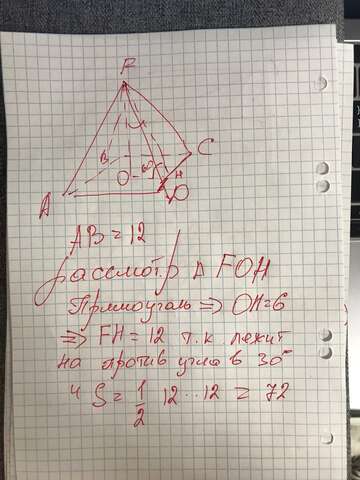 F
B
C
O
60°
H
A
D
AB = 12
рассмотр Δ FOH
Прямоуголь => OH=6
=> FH = 12 т.к лежит
на против угла в 30°
и S = 1/2 12 · 12 = 72